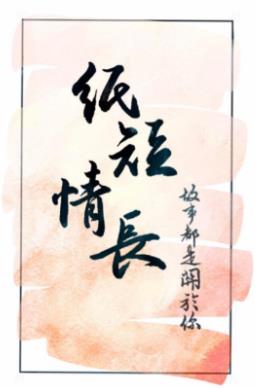 紙短
情長
故事都是關於你